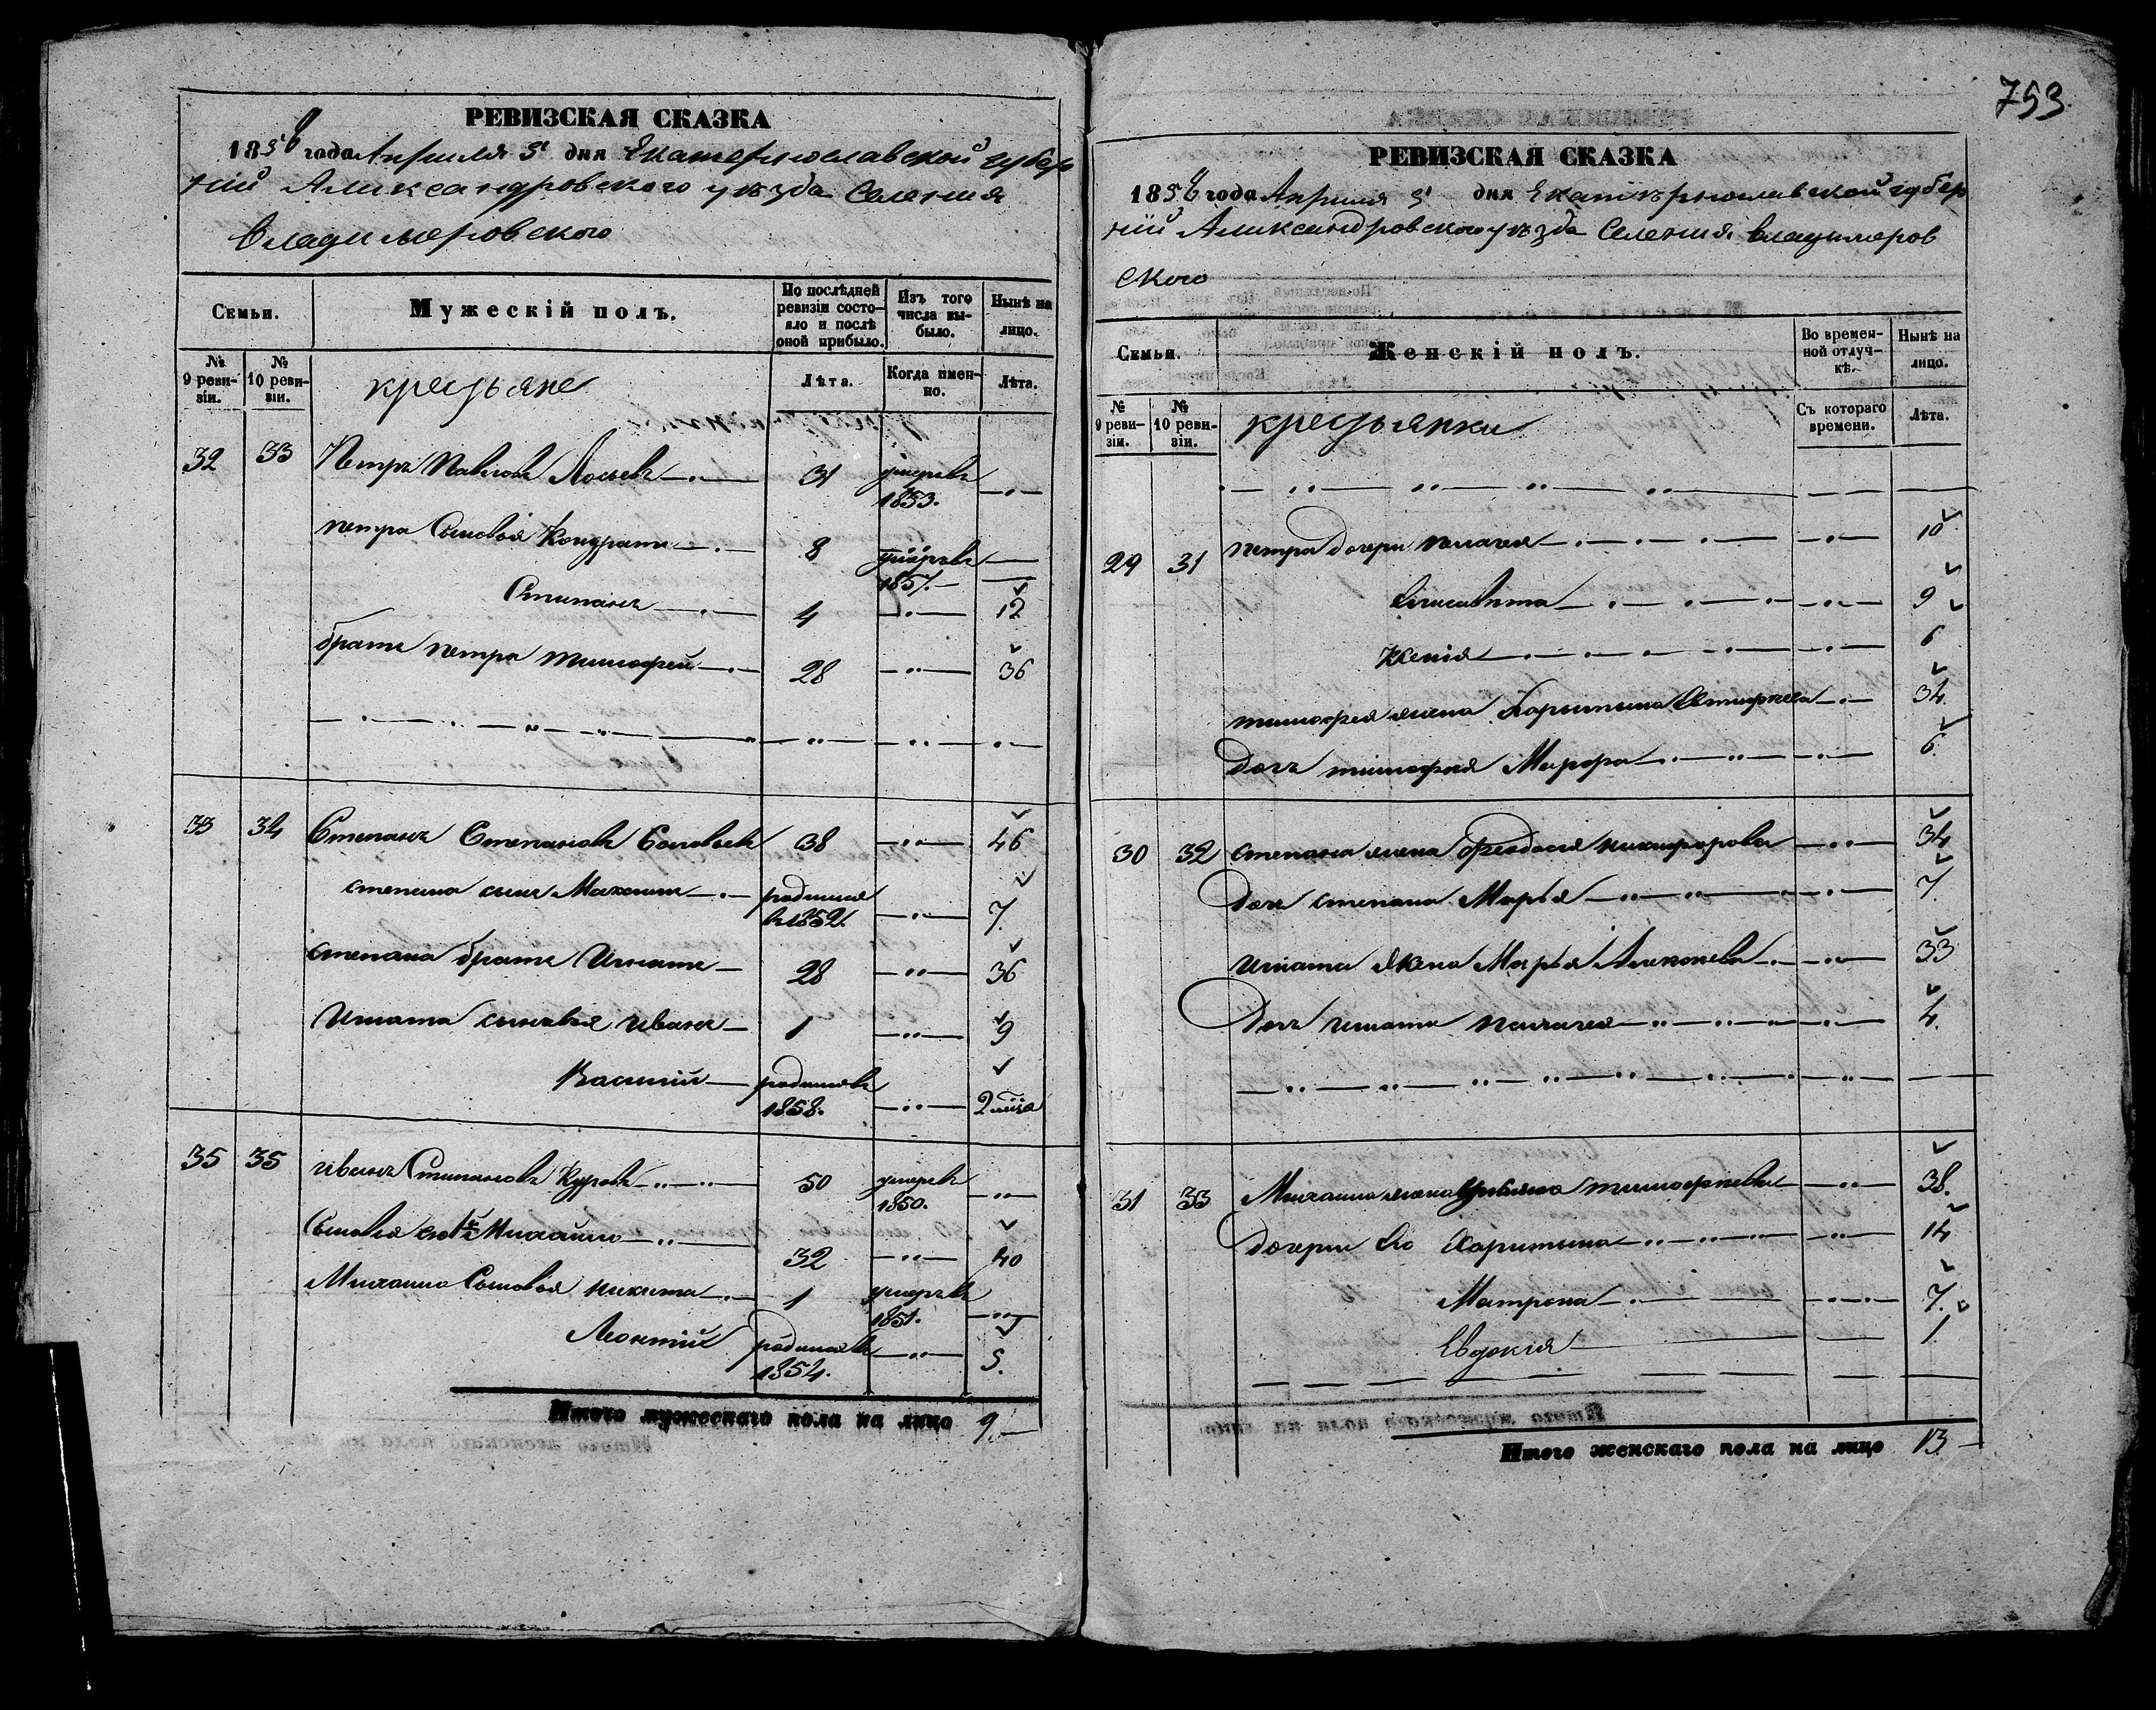 753.
РЕВИЗСКАЯ СКАЗКА
1858 года Апреля 5 дня Екатеринославской губер
ніи Александровского уѣзда Селения
Владимеровского
Семьи.
Мужескій полъ.
По послѣдней ревизіи состояло и послѣ оной прибыло.
Изъ того числа выбыло.
Нынѣ на лицо.
№ 9 ревизіи.
№ 10 ревизіи.
крестьяне
Лѣта.
Когда именно.
Лѣта.
32 33 Петръ Павловъ 31 умеръ 1853.
петра Сыновья Кондратъ 8 умеръ
Степанъ 4 12
братъ петра тимофей 28 36
33 34 Степанъ Степановъ Соловьевъ 38 46
степана сынъ Максимъ родился 7.
степана братъ Игнатъ 28 36
Игната сыновья иванъ 1 9
Василий родился 1858. 2
35 35 иванъ Степановъ 50 умеръ 1850.
Сыновья его Михайло 32 40
Михайло Сыновья никита 1 умеръ 1851.
Леонтий родился 1854. 5.
Итого мужескаго пола на лицо 9.
РЕВИЗСКАЯ СКАЗКА
1858 года Апреля 5 дня Екатеринославской губер
ніи Александровского уѣзда Селения Владимеров
ского
Семьи.
Женскій полъ.
Во временной отлучкѣ.
Нынѣ на лицо.
№ 9 ревизіи.
№ 10 ревизіи.
крестьянки
Съ котораго времени.
Лѣта.
29 31 петра дочери пелагея 10
Елисавета 9
Ксения 6
тимофея жена Харитина 34.
Дочь тимофея Марфа 6.
30 32 степана жена Феодосия никифорова 34
Дочь степана Марья 7.
игната жена Марья 33
Дочь игната пелагея 4.
31 33 Михаила жена тимофеева 38.
дочери его Харитина 14
Матрена 7.
Евдокия 1.
Итого женскаго пола на лицо 13